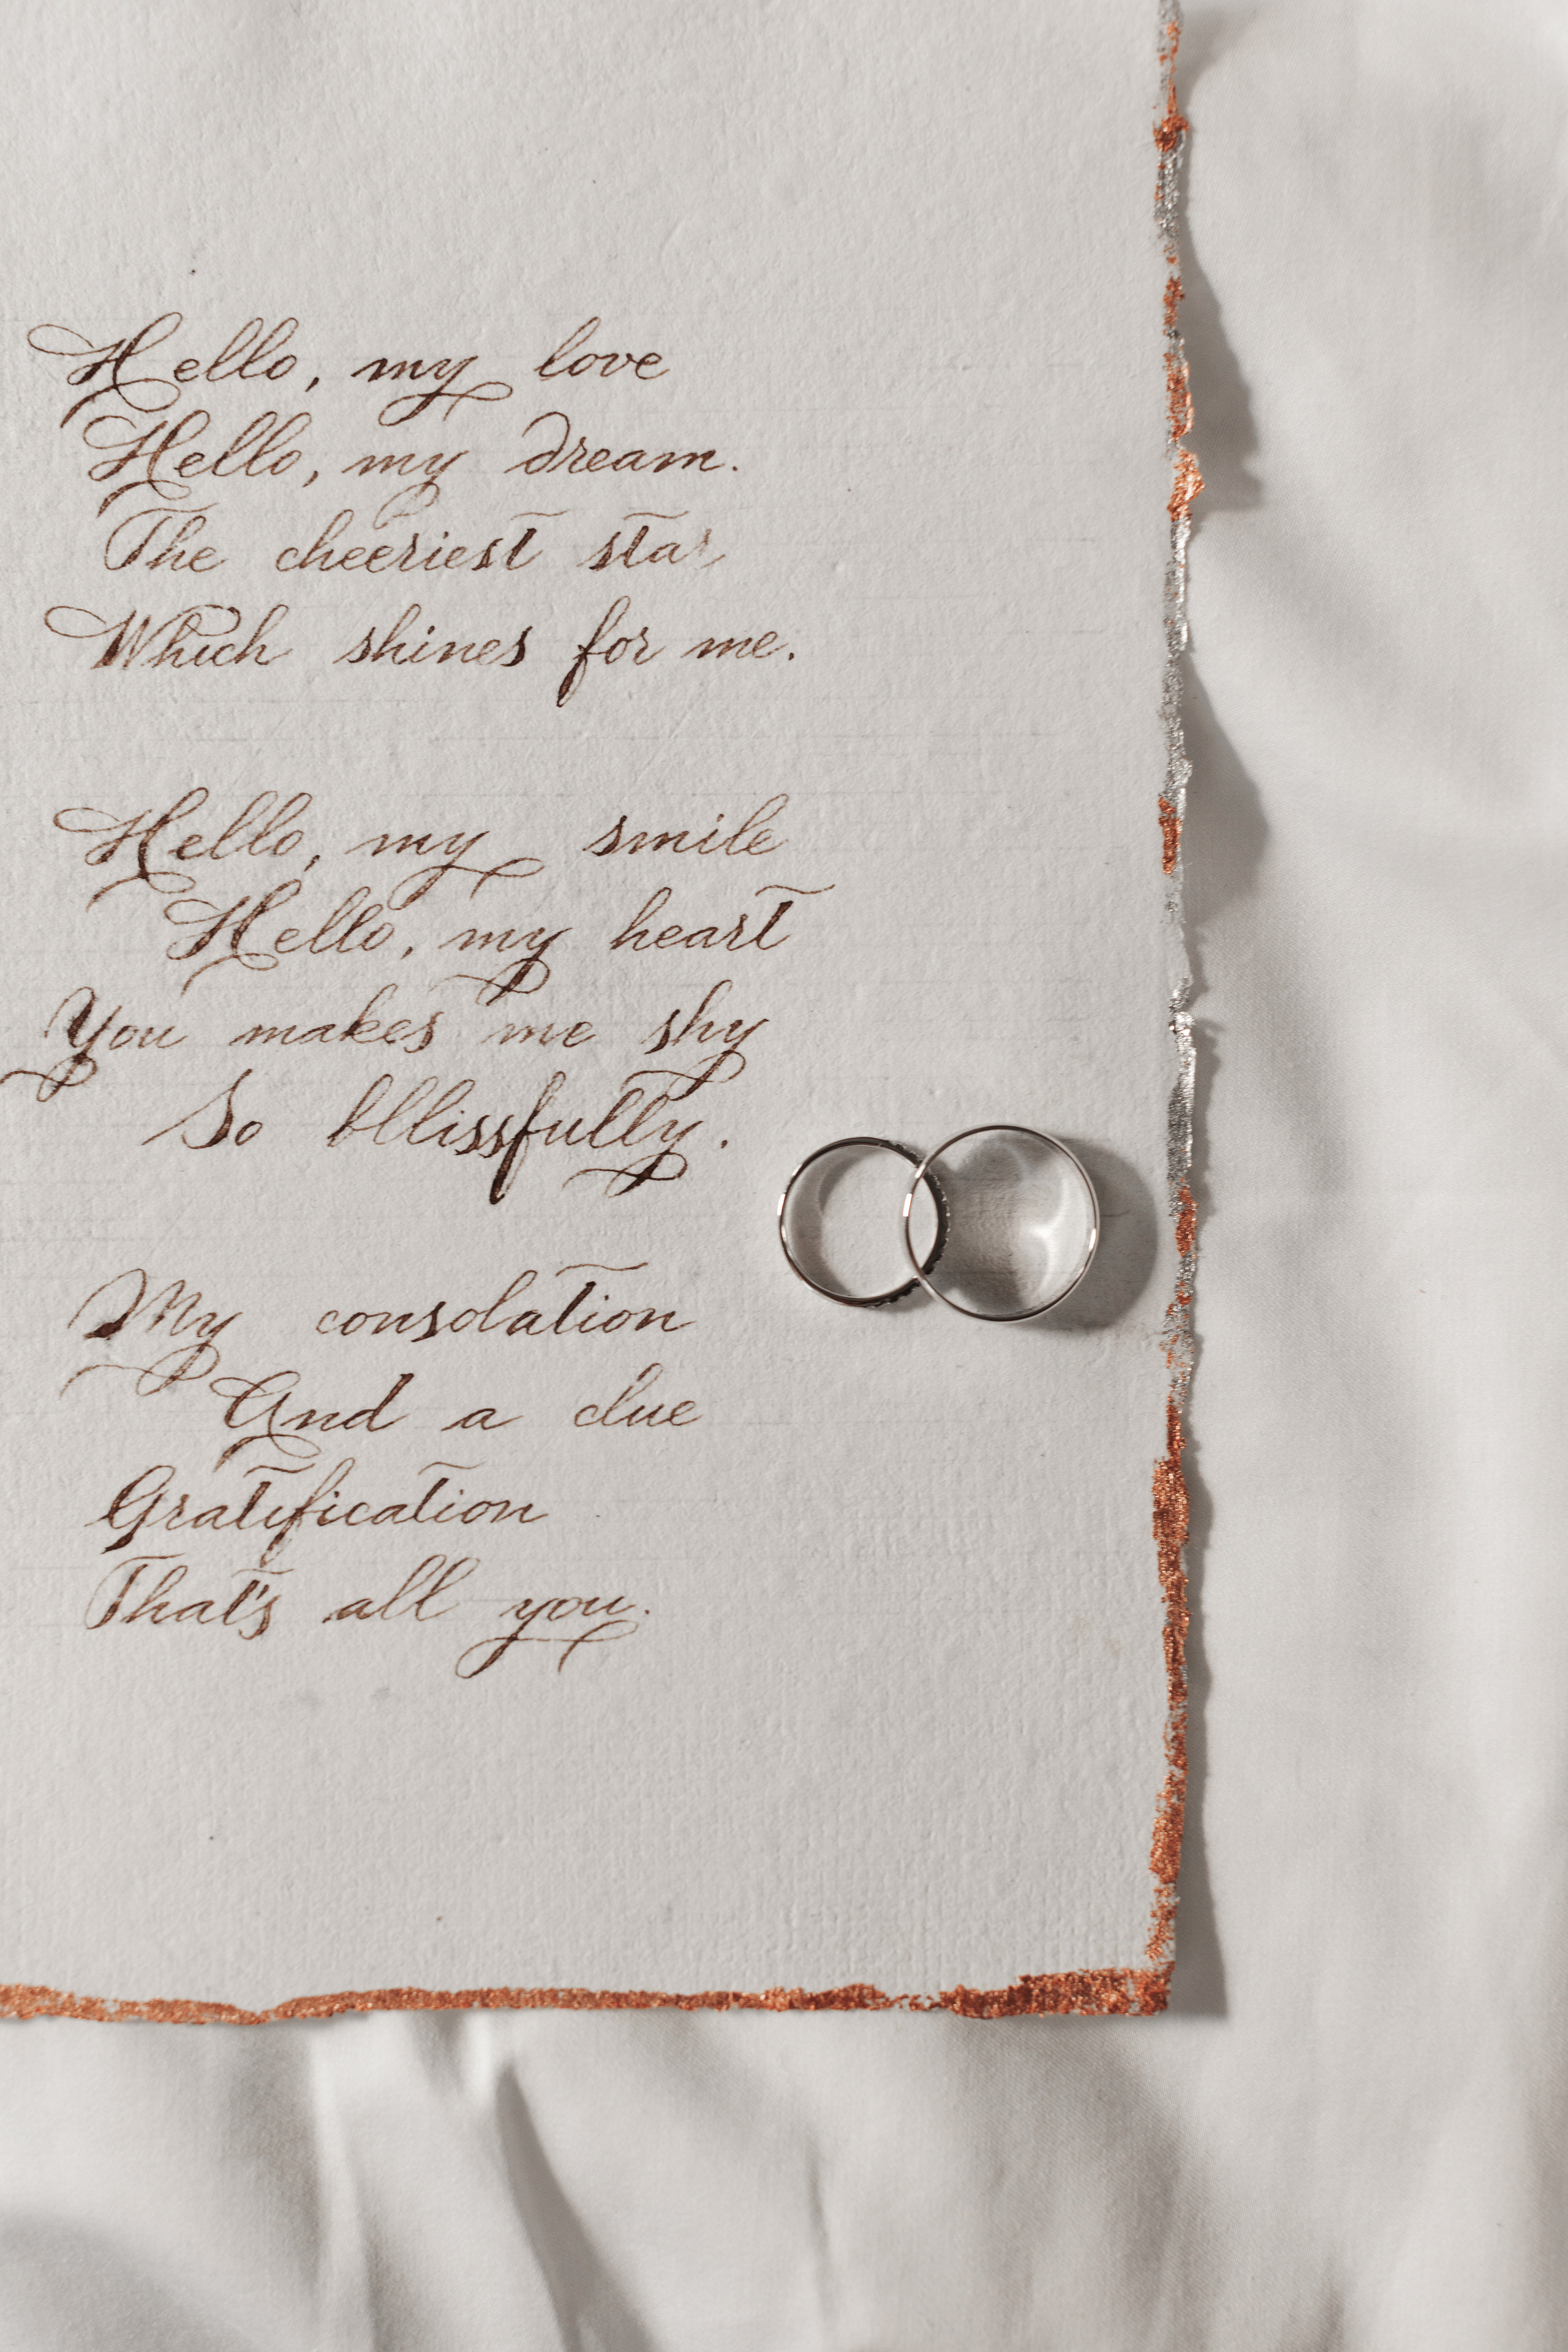 Hello, my love
Hello, my dream.
The cheeriest star
Which shines for me.
Hello, my smile
Hello, my heart
You makes me shy
So bllissfully.
My consolation
And a clue
Gratification
That's all you.